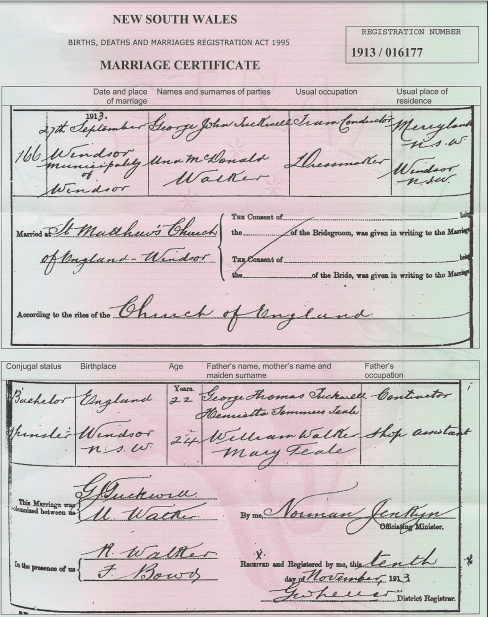 NEW SOUTH WALES
BIRTHS, DEATHS AND MARRIAGES REGISTRATION ACT 1995
REGISTRATION NUMBER
1913 / 016177
MARRIAGE CERTIFICATE
Date and place of marriage Names and surnames of parties Usual occupation Usual place of residence
1913.
27th September George John Tuckwell Tram Conductor Merrylands N.S.W
166 Windsor Municipality of Windsor Ann McDonald Walker Dressmaker Windsor N.S.W.
Married at St Matthew's Church of England - Windsor
The Consent of being
the of the Bridegroom, was given in writing to the Marriage
The Consent of being
the of the Bride, was given in writing to the Marriage
According to the rites of the Church of England.
Conjugal status Birthplace Age Father's name, mother's name and maiden surname Father's occupation
Years.
Bachelor England 22 George Thomas Tuckwell Contractor
Henrietta
Spinster Windsor N.S.W. 24 William Walker Shop Assistant
Mary Teale
This Marriage was solemnized between us
G J Tuckwell
Walker
By me, Norman Jenkyn
Officiating Minister.
In the presence of us
R. Walker
F. Bowd
X
Received and Registered by me, this tenth
day of November, 1913
District Registrar.